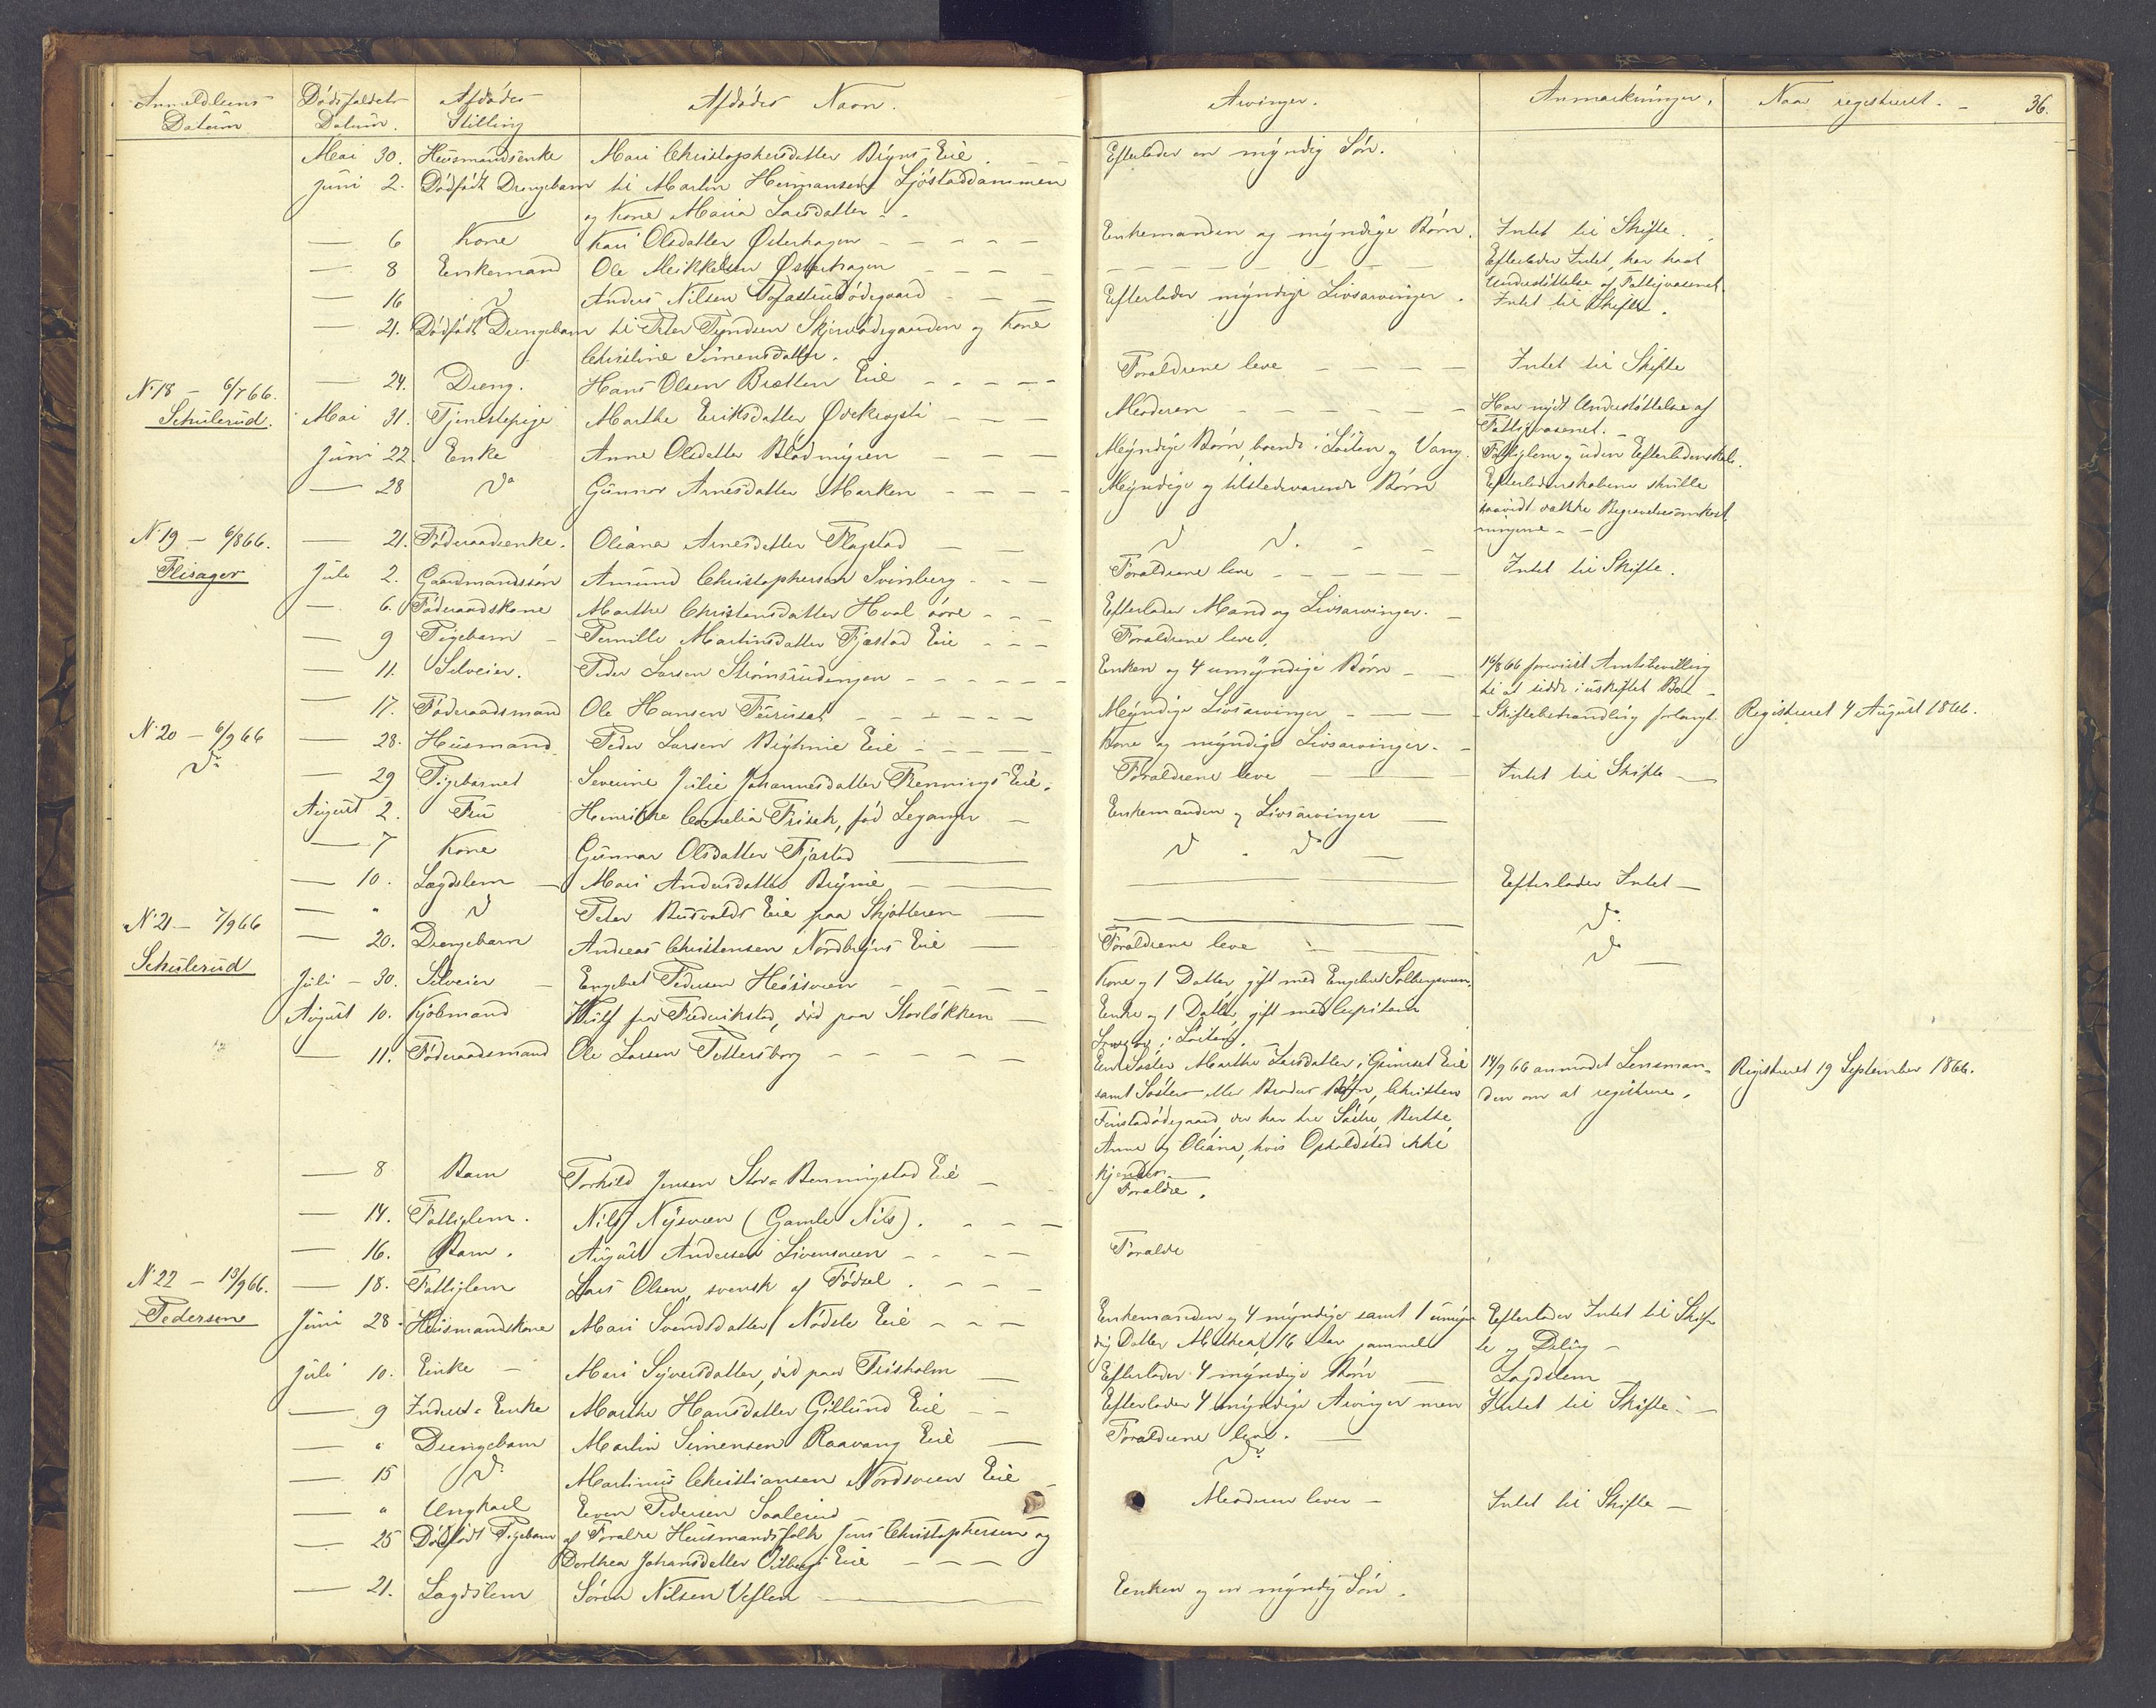 Anmeldelsens Datum | Dødsfaldets Datum. | Afdødes Stilling | Afdødes Navn. | Arvinger. | Anmærkninger. | Naar registreret. - 36.
Mai 30. | Huusmandsenke | Mari Christophersdatter Bryns Eie. | Efterlader en myndig Søn.
Juni 2. | Dødfødt Drengebarn til Martin Hermansen Sjøstaddammen
og Kone Maria Larsdatter - -
— 6 | Kone | Kari Olsdatter Østerhagen | Enkemanden og myndige Børn. | Intet til Skifte.
— 8 | Enkemand | Ole Mikkelsen Østerhagen | Efterlader Intet, har havt
Understøttelse af Fattigvæsenet.
— 16 | Do | Anders Nilsen Tofastrudødegaard | Efterlader myndige Livsarvinger. | Intet til Skifte.
— 21. | Dødfødt Drengebarn til Peter Syndsen og Kone
Christine Simensdatter.
— 24. | Dreng. | Hans Olsen Brætten Eie | Forældrene leve | Intet til Skifte
No 18 - 6/7 66. Schulerud. | Mai 31. | Tjenestepige | Marthe Eriksdatter | Moderen | Har nydt Understøttelse af
Fattigvæsenet.
Juni 22. | Enke | Anne Olsdatter Blodmyren | Myndige Børn, boende i Løiten og Vang. | Fattiglem og uden Efterladenskab.
— 28 | Do | Gunnor Arnesdatter Marken | Myndige og tilstedeværende Børn | Efterladenskabene skulle
saavidt række Begravelsesomkost-
ningerne -
No 19 - 6/8 66. Flisager | — 21. | Føderaadsenke. | Oliana Arnesdatter Flagstad | Do Do.
Juli 2. | Gaardmandssøn | Amund Christophersen Svinberg | Forældrene leve | Intet til Skifte.
— 6. | Føderaadskone | Marthe Christensdatter Hval øvre | Efterlader Mand og Livsarvinger.
— 9 | Pigebarn | Pernille Martinsdatter Fjæstad Eie | Forældrene leve.
— 11. | Selveier. | Peder Larsen Strømsrudengen | Enken og 4 umyndige Børn | 14/8 66 foreviist Amtsbevilling
til at sidde i uskiftet Bo -
— 17. | Føderaadsmand | Ole Hansen Furuset | Myndige Livsarvinger | Skiftebehandling forlangt. | Registreret 4 August 1866.
No 20 - 6/9 66 Do | — 28. | Huusmand | Peder Larsen Eie | Kone og myndige Livsarvinger.
— 29 | Pigebarnet | Severine Julie Johannesdatter Rennings Eie. | Forældrene leve | Intet til Skifte
August 2. | Fru | Henrikke Cornelia Frisak, fød Leganger | Enkemanden og Livsarvinger
— 7 | Kone | Gunnor Olsdatter Fjæstad | Do Do
— 10. | Lægdslem | Mari Andersdatter Brynie | Efterlader Intet
— " | Do | Peter Rusvolds Eie paa Skjøtteren | Do
No 21 - 7/9 66 Schulerud | — 20. | Drengebarn | Andreas Christensen Nordbryns Eie | Forældrene leve | Do
Juli - 30. | Selveier | Engebret Pedersen Høissveen | Kone og 1 Datter gift med Engebret Solbergsveen.
August 10. | Kjøbmand | Wulf fra Frederikstad, død paa Storløkken | Enke og 1 Datter, gift med Capitain
i Løiten.
— 11. | Føderaadsmand | Ole Larsen Pettersborg | En Søster Marthe Larsdatter, i Grimset Eie | 14/9 66 anmodet Lensman- | Registreret 19 September 1866.
samt Søsters eller Broders Børn, Christen | den om at registrere.
Finstadødegaard, der har tre Søstre, Berthe
Anne og Oliana, hvis Opholdsted ikke
kjendes.
— 8 | Barn | Torkild Jensen Store Benningstad Eie | Forældre.
— 14. | Fattiglem. | Nils Nysveen (Gamle Nils).
— 16. | Barn. | August Andersen Livensveen | Forældre
No 22 - 13/9 66. Pedersen | — 18. | Fattiglem | Lars Olsen, svensk af Fødsel.
Juni 28 | Huusmandskone | Mari Svendsdatter Nødsle Eie | Enkemanden og 4 myndige samt 1 umyn- | Efterlader Intet til Skif-
dig Datter Mathea, 16 Aar gammel | te og Deling -
Juli 10. | Enke | Mari Syversdatter, død paa Frisholm | Efterlader 4 myndige Børn | Lægdslem
— 9 | Inderst. Enke | Marthe Hansdatter Gillund Eie | Efterlader 4 myndige Arvinger men | Intet til Skifte
— " | Drengebarn | Martin Simensen Raavang Eie | Forældrene leve.
— 15 | Do | Martinus Christiansen Nordsveen Eie | Do
— " | Ungkarl | Even Pedersen Saalerud | Moderen lever | Intet til Skifte
— 25 | Dødfødt Pigebarn af Forældre Huusmandsfolk Jens Christophersen og
Dorthea Johansdatter Oulbergs Eie
— 21. | Lægdslem | Søren Nilsen Veflen | Enken og en myndig Søn.